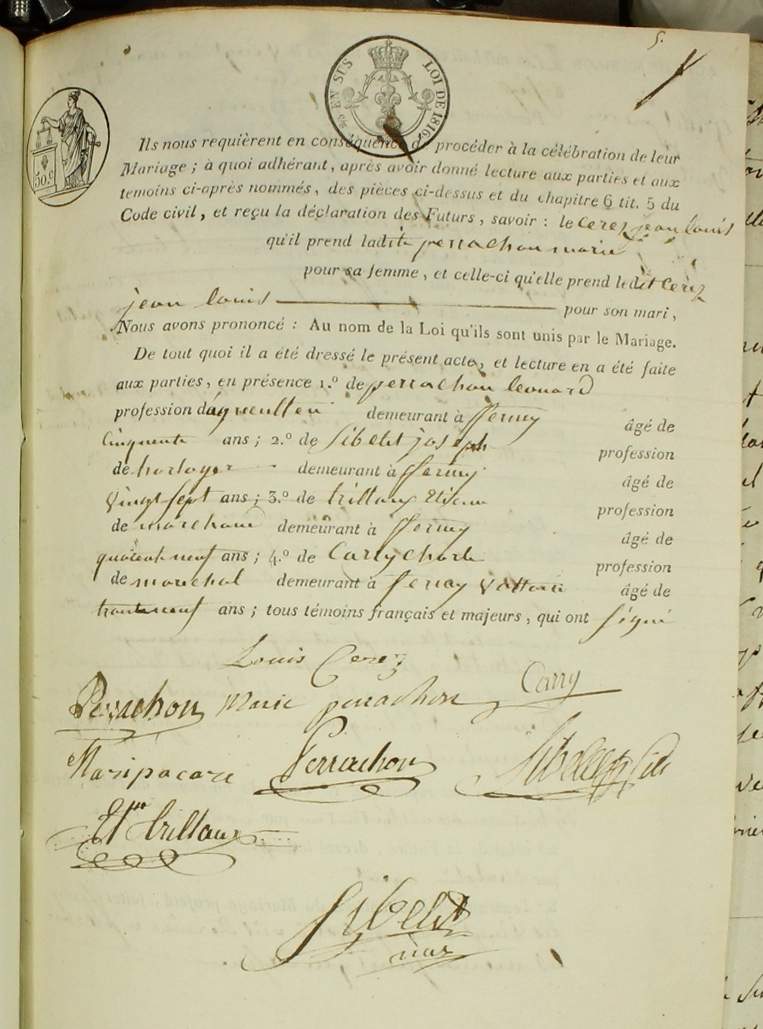 5.
EN SUS LOI DE 1816
50c
Ils nous requièrent en conséquence de procéder à la célébration de leur
Mariage ; à quoi adhérant, après avoir donné lecture aux parties et aux
témoins ci-après nommés, des pièces ci-dessus et du chapitre 6 tit. 5 du
Code civil, et reçu la déclaration des Futurs, savoir : le Cerez jean louis
qu'il prend ladite perrachon marie
pour sa femme, et celle-ci qu'elle prend ledit Cerez
jean louis pour son mari,
Nous avons prononcé : Au nom de la Loi qu'ils sont unis par le Mariage.
De tout quoi il a été dressé le présent acte, et lecture en a été faite
aux parties, en présence 1.º de perrachon léonard
profession d'agriculteur demeurant à fferney âgé de
Cinquante ans ; 2.º de Sibelit joseph profession
de horloger demeurant à fferney âgé de
Vingt sept ans ; 3.º de trillaux Etienne profession
de marchand demeurant à fferney âgé de
quarante neuf ans ; 4.º de Carry Charle profession
de marechal demeurant à fernay Voltaire âgé de
trente neuf ans ; tous témoins français et majeurs, qui ont signé
Louis Cerez
Perrachon Marie perrachon Carry
Perrachon Sibelit fils
Et. trillaux
Sibelit